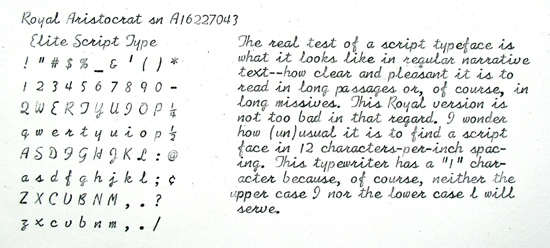 Royal Aristocrat sn A16227043
Elite Script Type
! " # $ % _ & ' ( ) *
1 2 3 4 5 6 7 8 9 0 -
Q W E R T Y U I O P ¼
q w e r t y u i o p ½
A S D F G H J K L : @
a s d f g h j k l ; ¢
Z X C V B N M , . ?
z x c v b n m , . /
The real test of a script typeface is
what it looks like in regular narrative
text--how clear and pleasant it is to
read in long passages or, of course, in
long missives. This Royal version is
not too bad in that regard. I wonder
how (un)usual it is to find a script
face in 12 characters-per-inch spac-
ing. This typewriter has a "1" char-
acter because, of course, neither the
upper case I nor the lower case l will
serve.